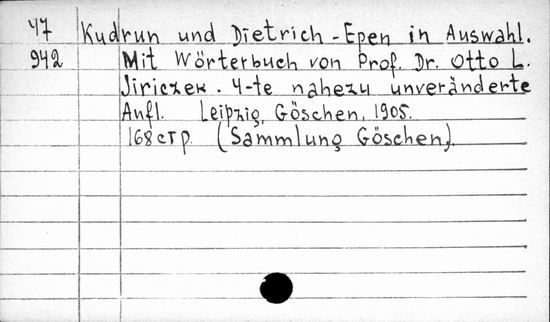 47 Kudrun und Dietrich-Epen in Auswahl.
942 Mit Wörterbuch von Prof. Dr. Otto L.
Jiriczek. 4-te nahezu unveränderte
Aufl. Leipzig, Göschen, 1905.
168 стр. (Sammlung Göschen).